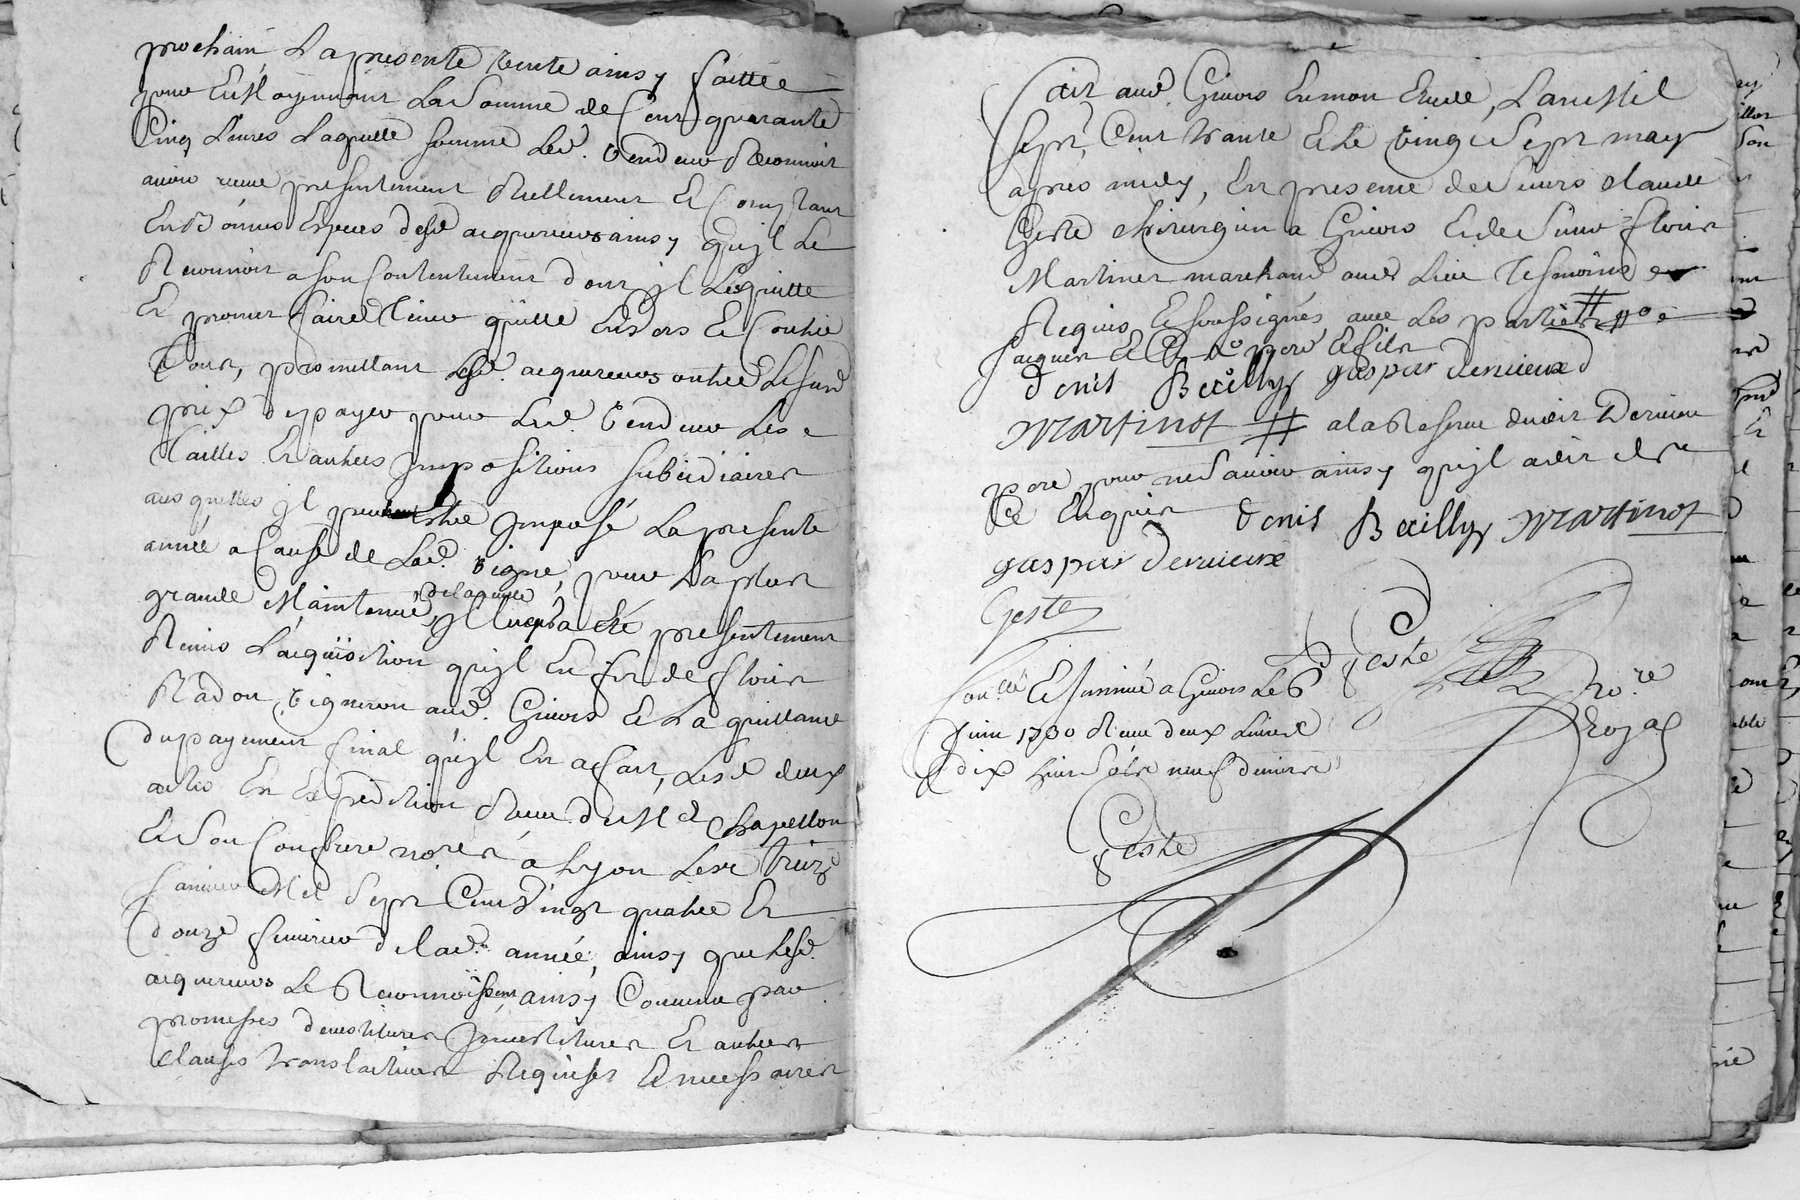 prochain, La presente vente ainsy faitte
pour Et Moyennant La Somme de Cent quarante
Cinq Livres Laquelle somme Led. vendeur Reconnoit
avoir reçue presentement Reellement Et Comptant
En Bonnes Especes desd acquereurs ainsy qu'jl Le
Reconnoit a son Contentement dont jl Les quitte
Et promet faire tenir quitte Envers Et Contre
Tous, promettant Lesd. acquereurs outre Lesusd
prix de payer pour Led. vendeur Les
Tailles Et autres jmpositions subsidiaires
ausquelles jl peut Estre jmposé La presente
année a Cause de Lad. vigne, pour La plus
grande Maintenue, de laquelle jl leur a Esté presentement
Remis L'acquisition qu'jl En fit de fleury
Radou, vigneron aud. Givors Et La quittance
du payement final qu'jl En a fait, Lesd deux
actes En Expedition Reçue de Me Chapellon
Et Son Confrere nores a Lyon Les treize
janvier Mil Sept Cent Vingt quatre Et
douze fevrier de lad. année, ainsy que Lesd.
acquereurs Le Reconnoissent, ainsy Comme par
promesses devestitures jnvestitures Et autres
Clauses translatives Requises Et necessaires
Fait aud. Givors En mon Etude, L'an Mil
Sept Cent trante Et Le vingt Sept may
apres midy, En presence de Sieurs Claude
Geste chirurgien a Givors Et de Sieur fleury
Martinet marchand aud Lieu tesmoins
Requis Et soussignés avec Les parties #
jacques Et père Et fils
denis Bailly gaspar derrieux d
Martinot # a la Reserve dudit Derrieux
pere pour ne Savoir ainsy qu'jl a dit de
Ce Enquis denis Bailly Martinot
gaspar derrieux
Geste
Geste
Conllé Et Jnsinué a Givors Le 6
Juin 1730 Reçu deux Livres
dix huit Sols neuf deniers
Geste
No.re
Royal